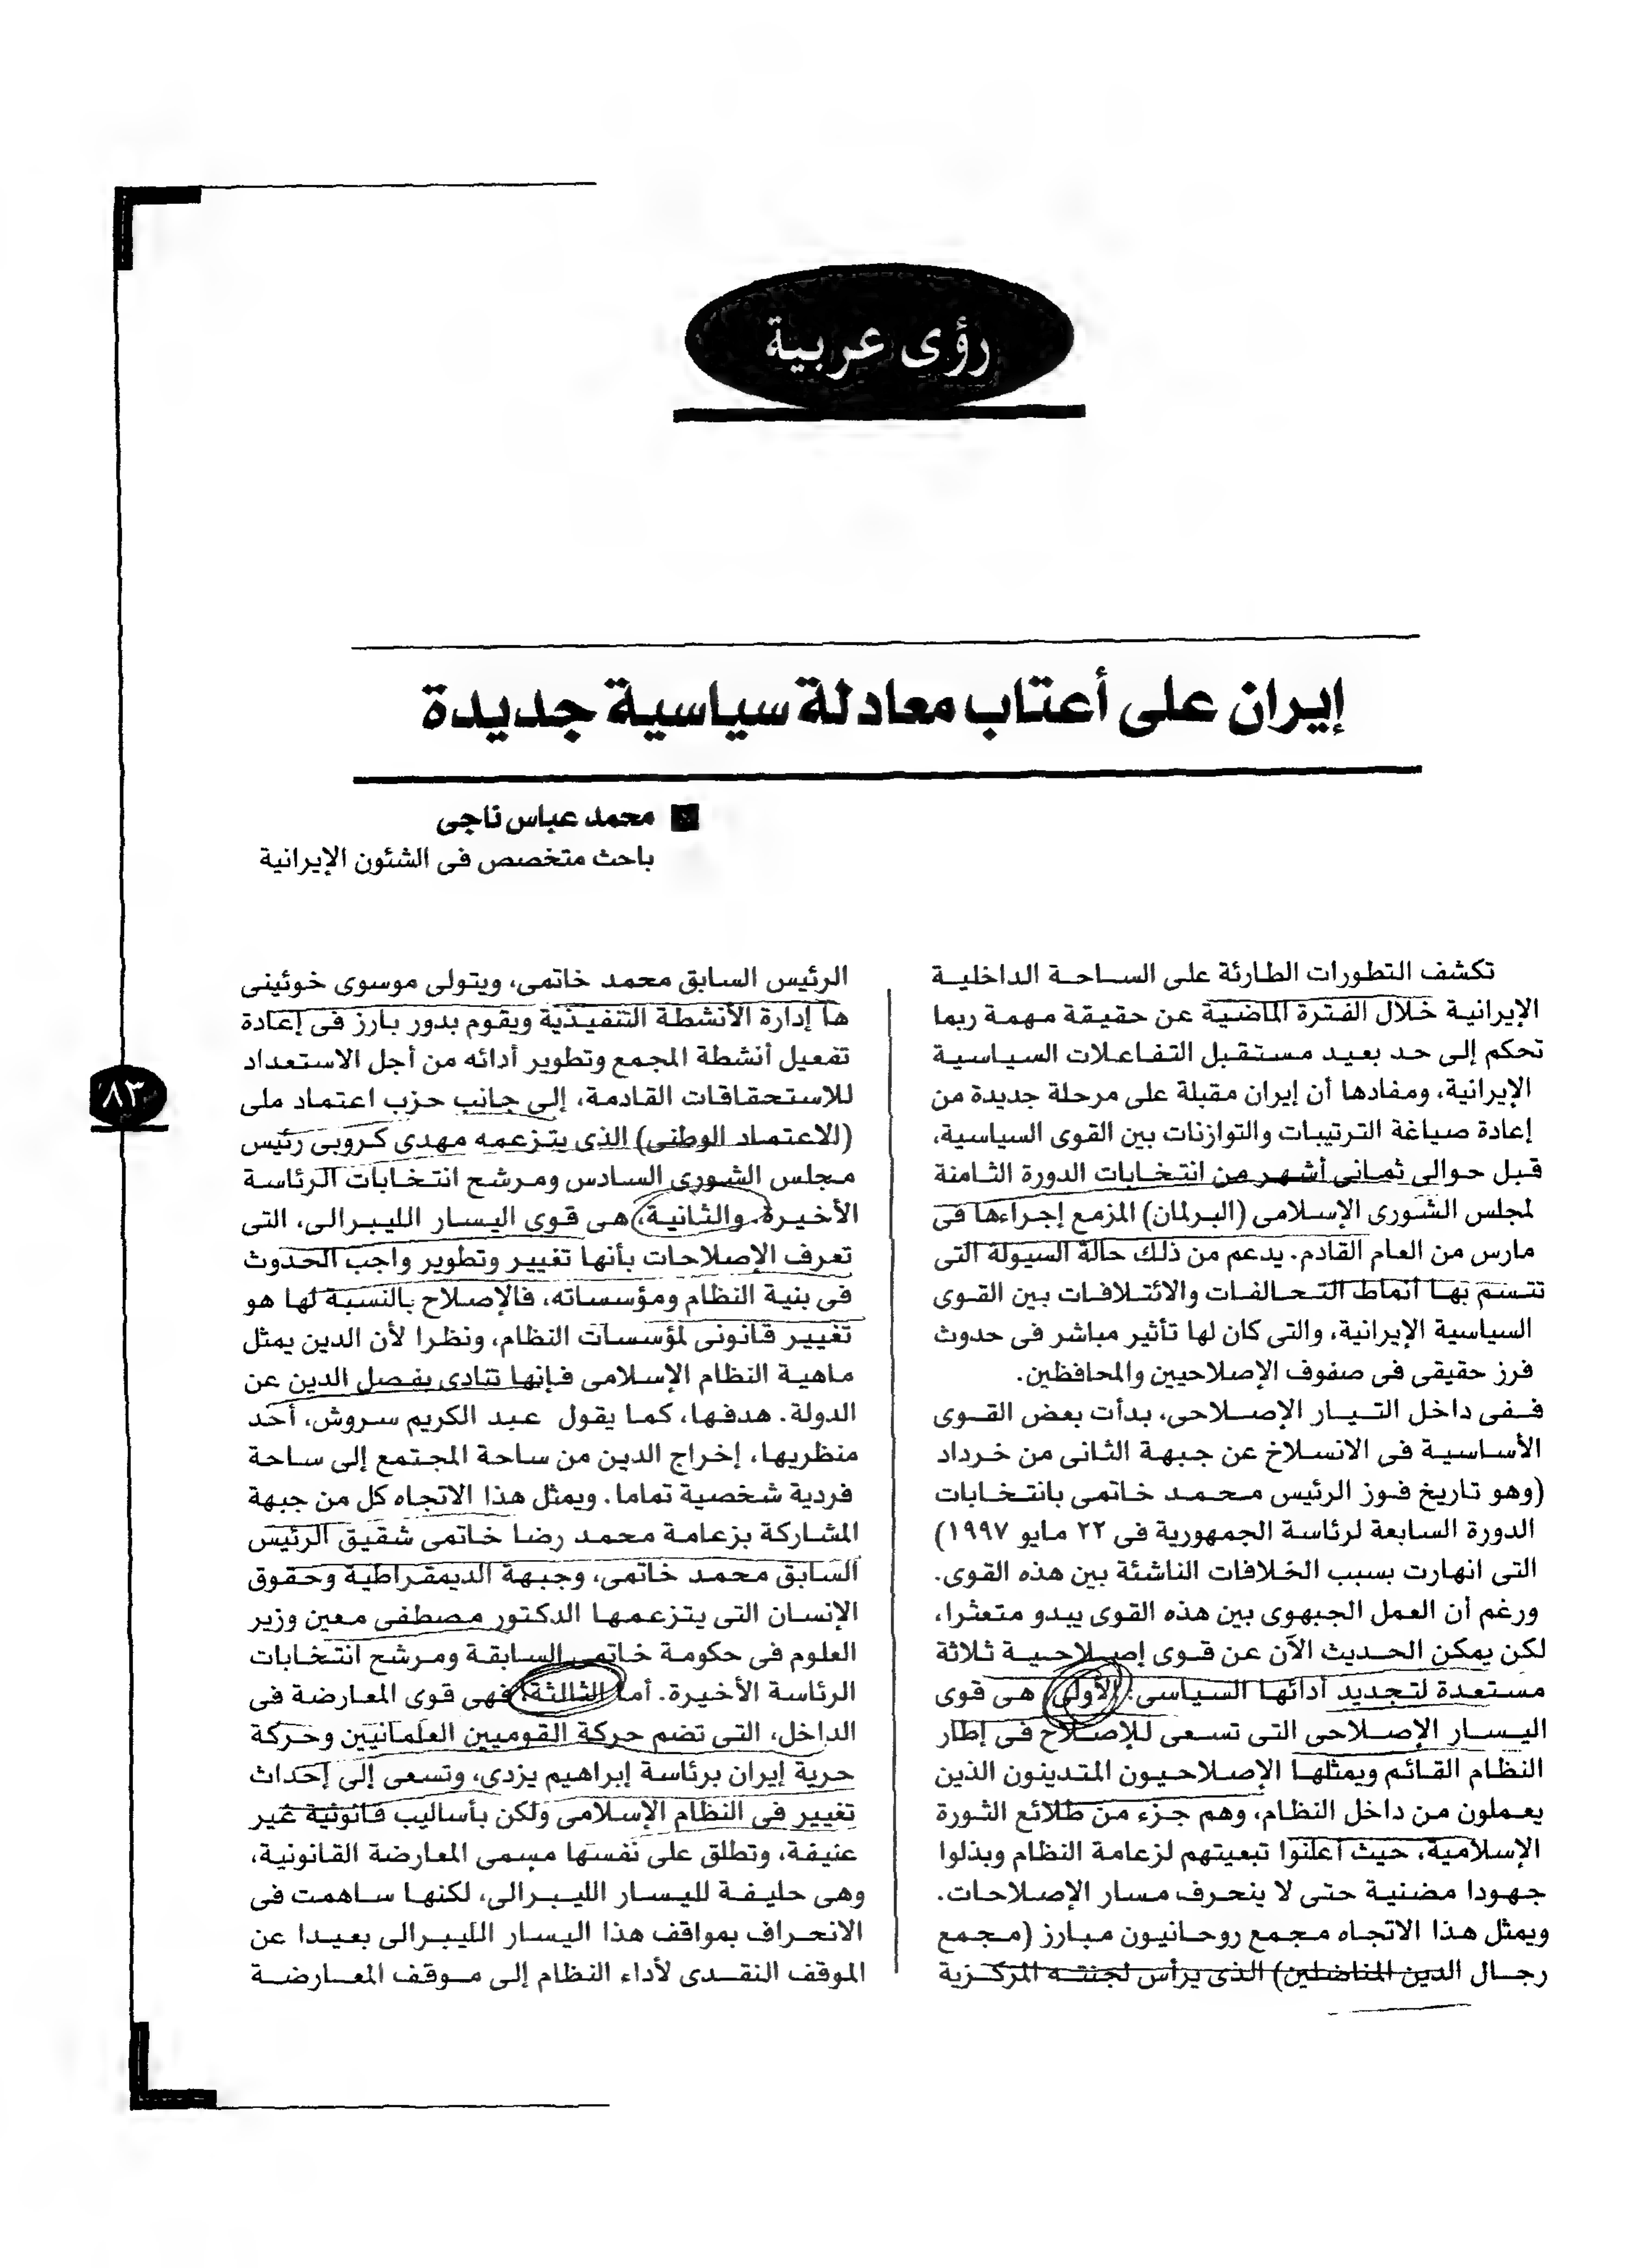 رؤى عربية
إيران على أعتاب معادلة سياسية جديدة
محمد عباس ناجى
باحث متخصص فى الشئون الإيرانية
تكشف التطورات الطارئة على الساحة الداخلية
الإيرانية خلال الفترة الماضية عن حقيقة مهمة ربما
تحكم إلى حد بعيد مستقبل التفاعلات السياسية
الإيرانية، ومفادها أن إيران مقبلة على مرحلة جديدة من
إعادة صياغة الترتيبات والتوازنات بين القوى السياسية،
قبل حوالى ثمانى أشهر من انتخابات الدورة الثامنة
لمجلس الشورى الإسلامى (البرلمان) المزمع إجراءها فى
مارس من العام القادم. يدعم من ذلك حالة السيولة التى
تتسم بها أنماط التحالفات والائتلافات بين القوى
السياسية الإيرانية، والتى كان لها تأثير مباشر فى حدوث
فرز حقيقى فى صفوف الإصلاحيين والمحافظين.
ففى داخل التيار الإصلاحى، بدأت بعض القوى
الأساسية فى الانسلاخ عن جبهة الثانى من خرداد
(وهو تاريخ فوز الرئيس محمد خاتمى بانتخابات
الدورة السابعة لرئاسة الجمهورية فى ٢٢ مايو ١٩٩٧)
التى انهارت بسبب الخلافات الناشئة بين هذه القوى.
ورغم أن العمل الجبهوى بين هذه القوى يبدو متعثرا،
لكن يمكن الحديث الآن عن قوى إصلاحية ثلاثة
مستعدة لتجديد أدائها السياسى: الأولى، هى قوى
اليسار الإصلاحى التى تسعى للإصلاح فى إطار
النظام القائم ويمثلها الإصلاحيون المتدينون الذين
يعملون من داخل النظام، وهم جزء من طلائع الثورة
الإسلامية، حيث أعلنوا تبعيتهم لزعامة النظام وبذلوا
جهودا مضنية حتى لا ينحرف مسار الإصلاحات.
ويمثل هذا الاتجاه مجمع روحانيون مبارز (مجمع
رجال الدين المناضلين) الذى يرأس لجنته المركزية
الرئيس السابق محمد خاتمى، ويتولى موسوى خوئينى
ها إدارة الأنشطة التنفيذية ويقوم بدور بارز فى إعادة
تفعيل أنشطة المجمع وتطوير أدائه من أجل الاستعداد
للاستحقاقات القادمة، إلى جانب حزب اعتماد ملى
(الاعتماد الوطنى) الذى يتزعمه مهدى كروبى رئيس
مجلس الشورى السادس ومرشح انتخابات الرئاسة
الأخيرة. والثانية، هى قوى اليسار الليبرالى، التى
تعرف الإصلاحات بأنها تغيير وتطوير واجب الحدوث
فى بنية النظام ومؤسساته، فالإصلاح بالنسبة لها هو
تغيير قانونى لمؤسسات النظام، ونظرا لأن الدين يمثل
ماهية النظام الإسلامى فإنها تنادى بفصل الدين عن
الدولة. هدفها، كما يقول عبد الكريم سروش، أحد
منظريها، إخراج الدين من ساحة المجتمع إلى ساحة
فردية شخصية تماما. ويمثل هذا الاتجاه كل من جبهة
المشاركة بزعامة محمد رضا خاتمى شقيق الرئيس
السابق محمد خاتمى، وجبهة الديمقراطية وحقوق
الإنسان التى يتزعمها الدكتور مصطفى معين وزير
العلوم فى حكومة خاتمى السابقة ومرشح انتخابات
الرئاسة الأخيرة. أما الثالثة، فهى قوى المعارضة فى
الداخل، التى تضم حركة القوميين العلمانيين وحركة
حرية إيران برئاسة إبراهيم يزدى، وتسعى إلى إحداث
تغيير فى النظام الإسلامى ولكن بأساليب قانونية غير
عنيفة، وتطلق على نفسها مسمى المعارضة القانونية،
وهى حليفة لليسار الليبرالى، لكنها ساهمت فى
الانحراف بمواقف هذا اليسار الليبرالى بعيدا عن
الموقف النقدى لأداء النظام إلى موقف المعارضة
٨٣